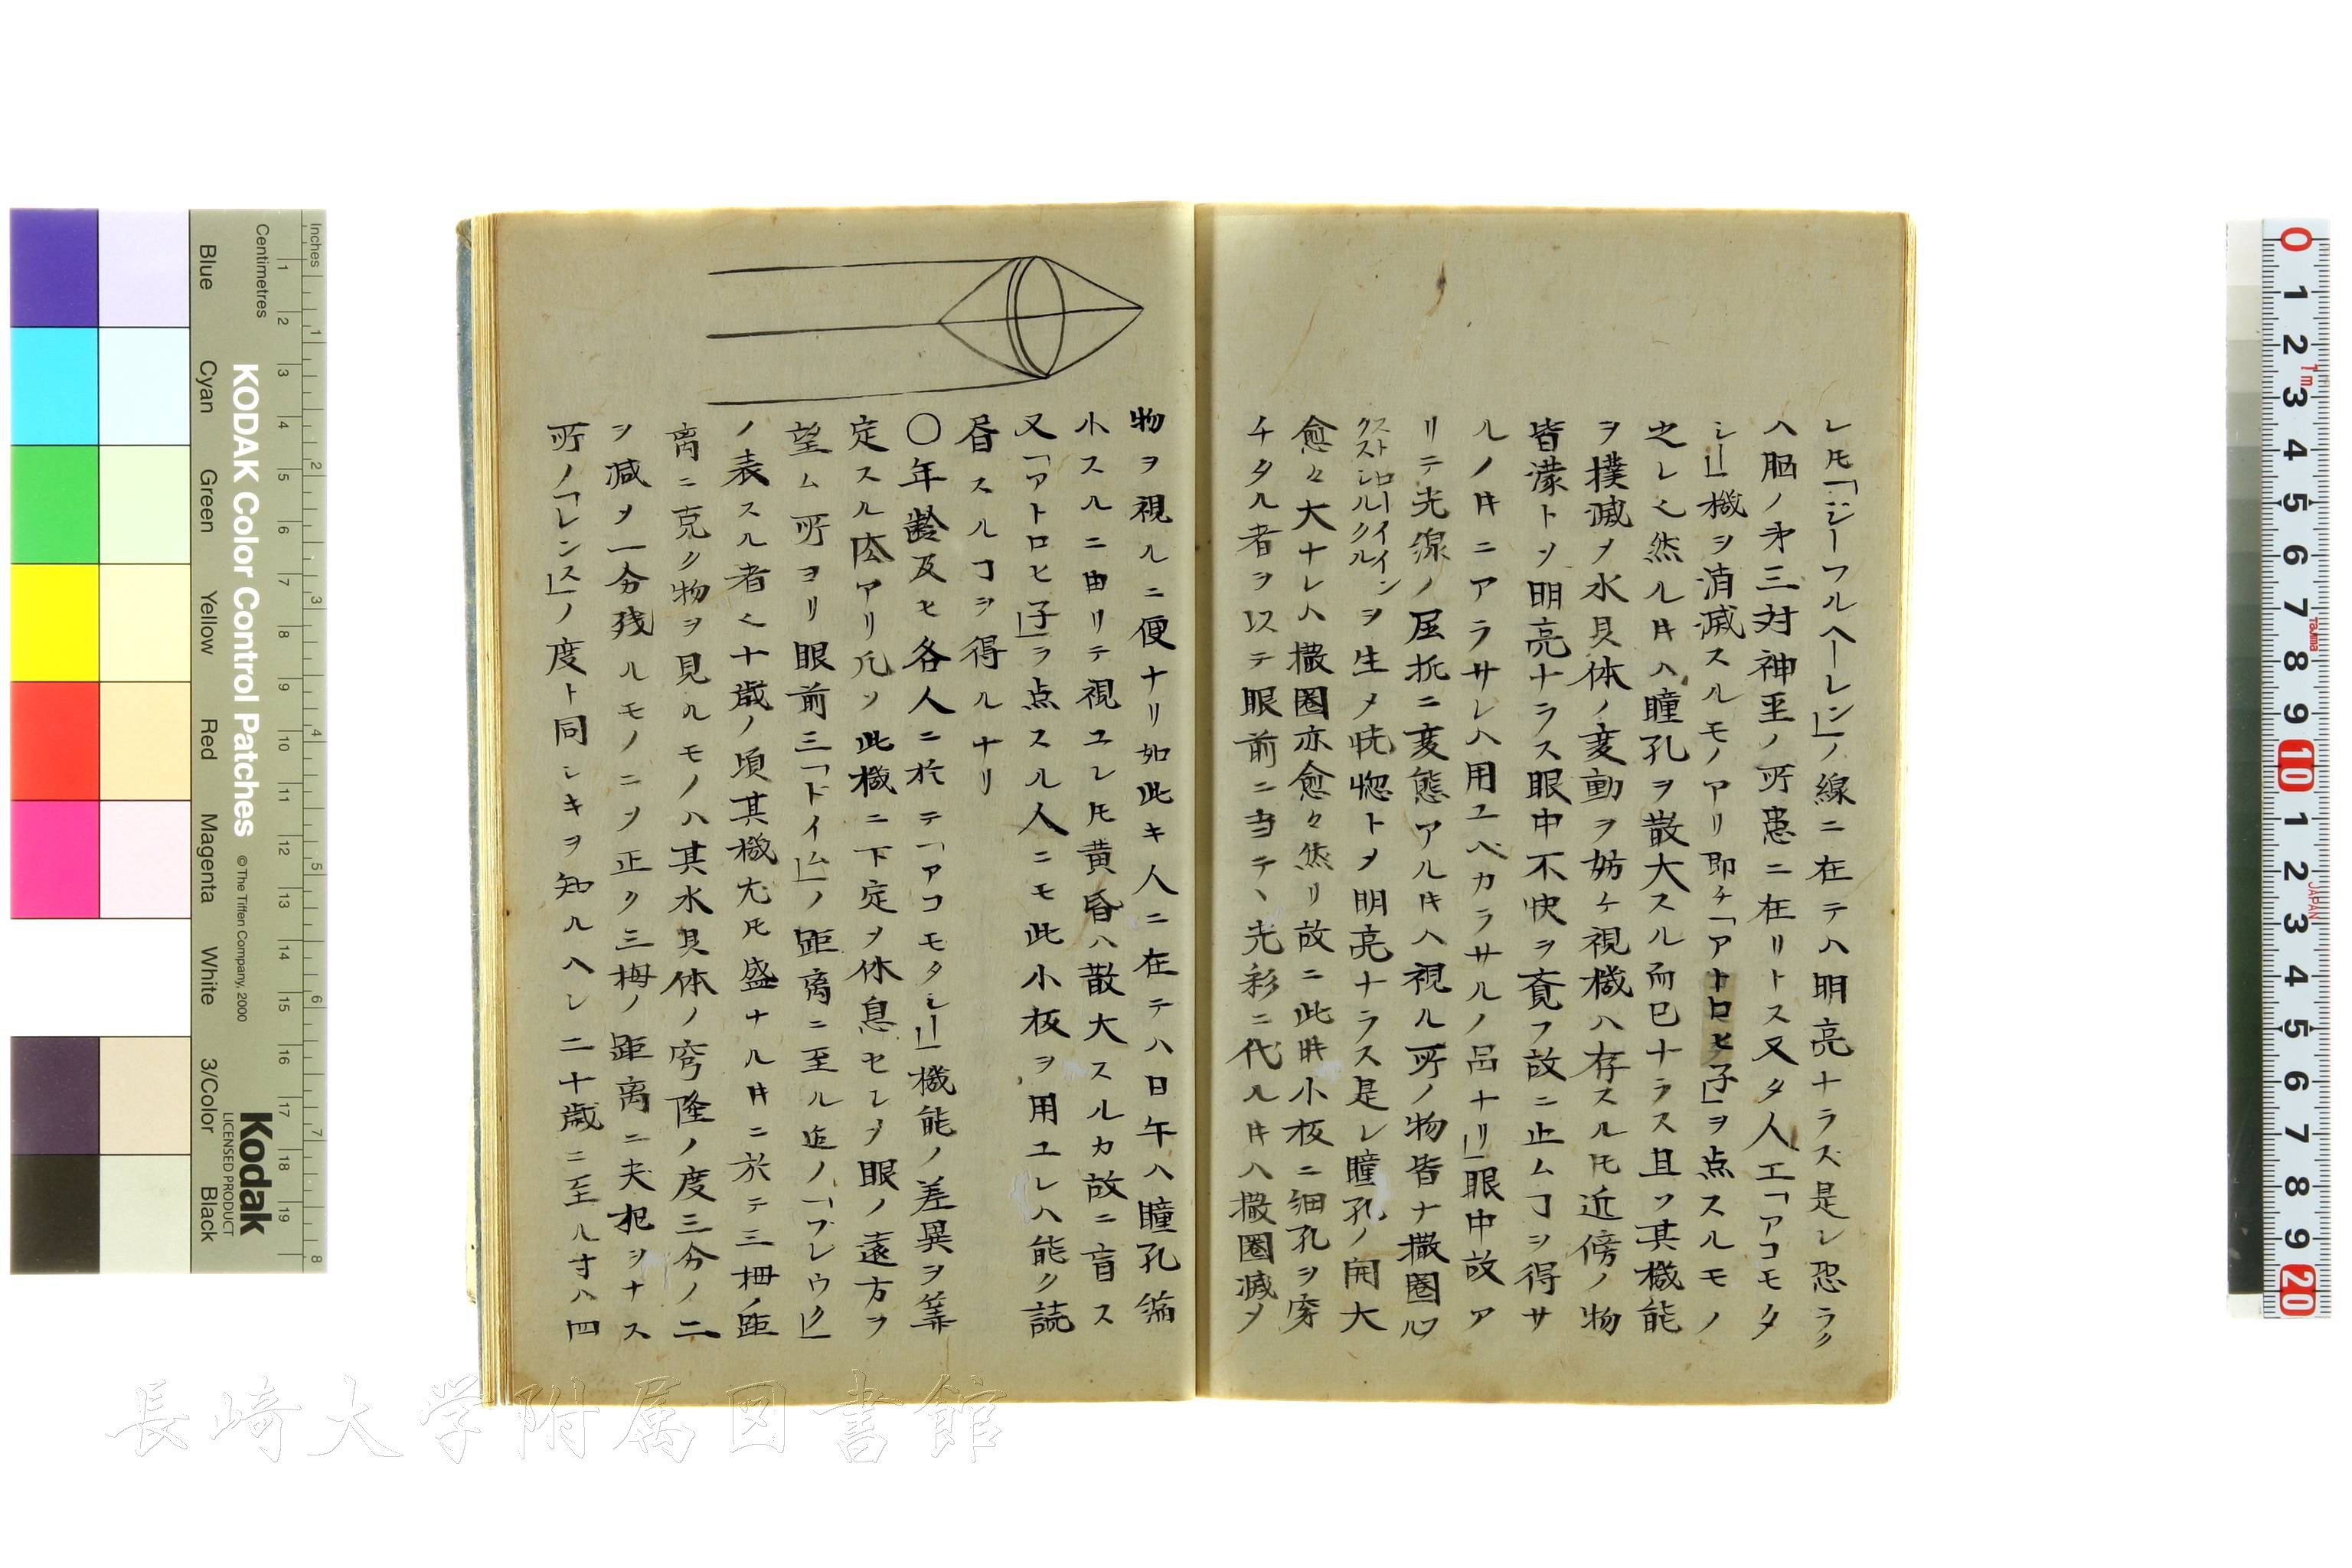 レ𪜈「ジーフルヘーレン」ノ線ニ在テハ明亮ナラス是レ恐ラク
ハ脳ノ第三対神経ノ所患ニ在リトス又タ人工「アコモタ
シー」機ヲ消滅スルモノアリ即チ「アトロヒ子」ヲ点スルモノ
之レ也然ル𪜈ハ瞳孔ヲ散大スル而已ナラス且ツ其機能
ヲ撲滅メ水具体ノ変動ヲ妨ケ視機ハ存スル𪜈近傍ノ物
皆濛トメ明亮ナラス眼中不快ヲ覚フ故ニ止ムヿヲ得サ
ルノ時ニアラサレハ用ユベカラサルノ品ナリ」眼中故ア
リテ光線ノ屈折ニ変態アル時ハ視ル所ノ物皆ナ撒圏
ヲ生メ恍惚トメ明亮ナラス是レ瞳孔ノ開大
愈々大ナレハ撒圏亦愈々然リ故ニ此時小板ニ細孔ヲ穿
チタル者ヲ以テ眼前ニ当テヽ光彩ニ代ル時ハ撒圏減メ
物ヲ視ルニ便ナリ如此キ人ニ在テハ日午ハ瞳孔縮
小スルニ由リテ視ユレ𪜈黄昏ハ散大スルカ故ニ盲ス
又「アトロヒ子」ヲ点スル人ニモ此小板ヲ用ユレハ能ク読
書スルヿヲ得ルナリ
〇年齢及ヒ各人ニ於テ「アコモタシー」機能ノ差異ヲ算
定スル法アリ凡ソ此機ニ下定メ休息セシメ眼ノ遠方ヲ
望ム所ヨリ眼前三「ドイム」ノ距离ニ至ル迄ノ「ブレウク」
ノ表スル者也十歳ノ頃其機尤𪜈盛ナル時ニ於テ三拇ノ距
离ニ克ク物ヲ見ルモノハ其水具体ノ穹隆ノ度三分ノ二
ヲ減メ一分残ルモノニメ正ク三拇ノ距离ニ夫犯ヲナス
所ノ「レンス」ノ度ト同シキヲ知ルヘシ二十歳ニ至ル寸ハ四
Inches
Centimetres
KODAK Color Control Patches
© The Tiffen Company, 2000
Kodak
LICENSED PRODUCT
Blue Cyan Green Yellow Red Magenta White 3/Color Black
1 2 3 4 5 6 7 8 9 10 11 12 13 14 15 16 17 18 19
1 2 3 4 5 6 7 8
0 1 2 3 4 5 6 7 8 9 10 1 2 3 4 5 6 7 8 9 20
1m
Tajima
JAPAN
長崎大学附属図書館